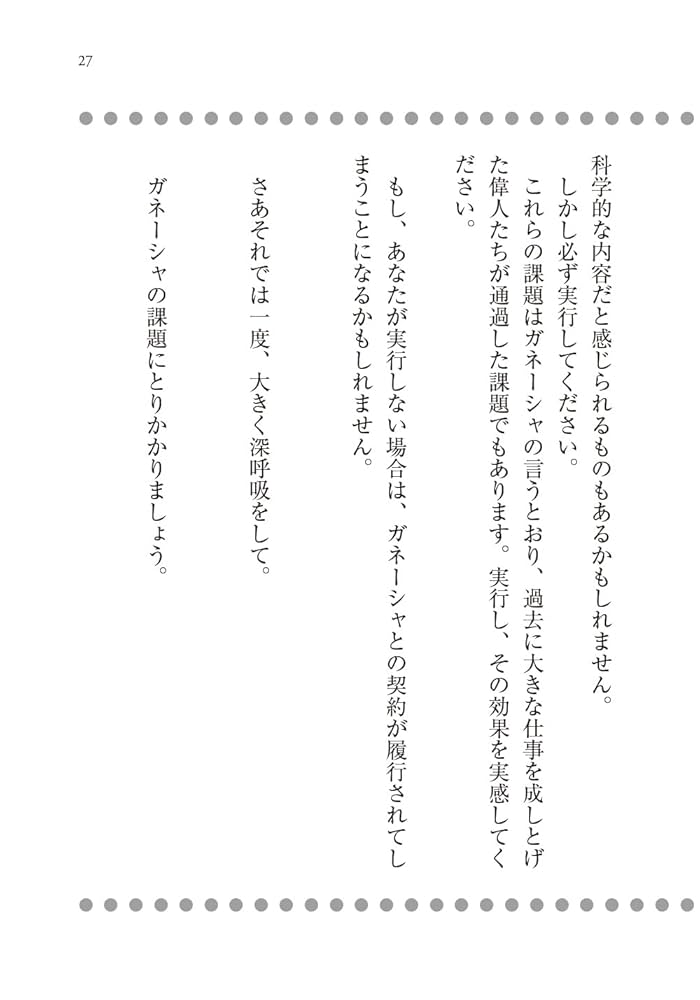 27
科学的な内容だと感じられるものもあるかもしれません。
しかし必ず実行してください。
これらの課題はガネーシャの言うとおり、過去に大きな仕事を成しとげ
た偉人たちが通過した課題でもあります。実行し、その効果を実感してく
ださい。
もし、あなたが実行しない場合は、ガネーシャとの契約が履行されてし
まうことになるかもしれません。
さあそれでは一度、大きく深呼吸をして。
ガネーシャの課題にとりかかりましょう。